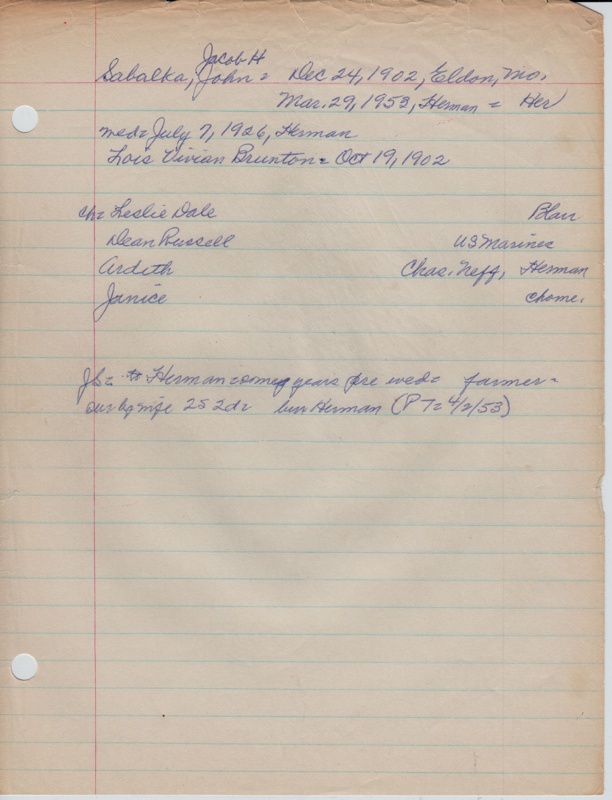 Jacob H
Sabalka, John = Dec 24, 1902, Eldon, Mo.
Mar. 29, 1953, Herman = Her
wed= July 7, 1926, Herman
Lois Vivian Brunton = Oct 19, 1902
ch= Leslie Dale Blair
Dean Russell US Marines
Ardith Chas. Neff, Herman
Janice @home.
JS= to Herman young years pre wed= farmer=
sur by wife 2S 2d= bur Herman (PT= 4/2/53)